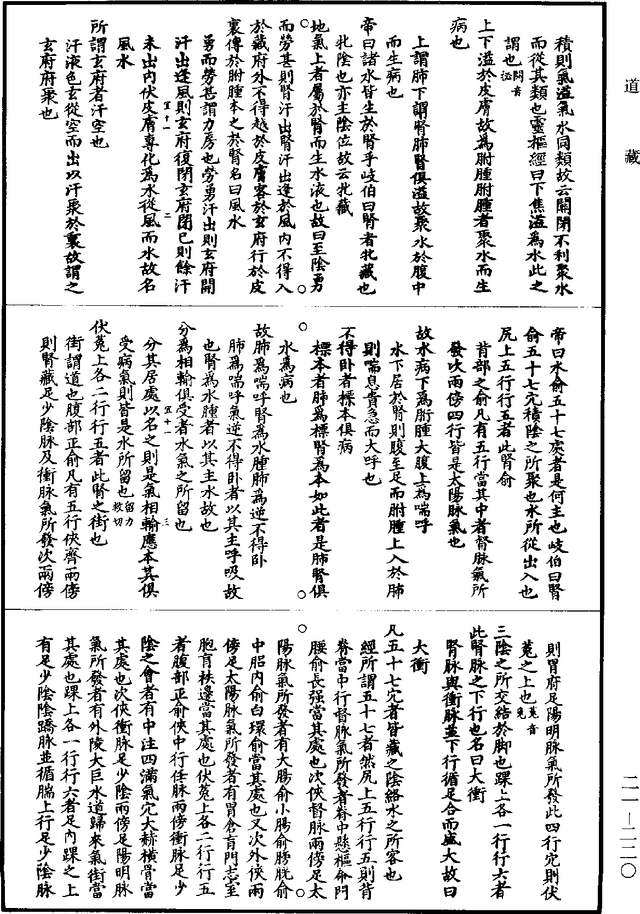 道藏
積則氣溢氣水同類故云關閉不利聚水
而從其類也靈樞經曰下焦溢為水此之
謂也關音泌
上下溢於皮膚故為胕腫胕腫者聚水而生
病也
上謂肺下謂腎肺腎俱溢故聚水於腹中
而生病也
帝曰諸水皆生於腎乎岐伯曰腎者牝藏也
牝陰也亦主陰位故云牝藏
地氣上者屬於腎而生水液也故曰至陰勇
而勞甚則腎汗出腎汗出逢於風內不得入
於藏府外不得越於皮膚客於玄府行於皮
裏傳於胕腫本之於腎名曰風水
勇而勞甚謂力房也勞勇汗出則玄府開
汗出逢風則玄府復閉玄府閉已則餘汗
未出內伏皮膚專化為水從風而水故名
風水
所謂玄府者汗空也
汗液色玄從空而出以汗聚於裏故謂之
玄府府聚也
帝曰水俞五十七處者是何主也岐伯曰腎
俞五十七穴積陰之所聚也水所從出入也
尻上五行行五者此腎俞
背部之俞凡有五行當其中者督脉氣所
發次兩傍四行皆是太陽脉氣也
故水病下為胕腫大腹上為喘呼
水下居於腎則腹至足而胕腫上入於肺
則喘息賁急而大呼也
不得卧者標本俱病
標本者肺為標腎為本如此者是肺腎俱
水為病也
故肺為喘呼腎為水腫肺為逆不得卧
肺為喘呼氣逆不得卧者以其主呼吸故
也腎為水腫者以其主水故也
分為相輸俱受者水氣之所留也
分其居處以名之則是氣相輸應本其俱
受病氣則皆是水所留也留力救切
伏菟上各二行行五者此腎之街也
街謂道也腹部正俞凡有五行俠齊兩傍
則腎藏足少陰脉及衝脉氣所發次兩傍
則胃府足陽明脉氣所發此四行穴則伏
菟之上也菟音兔
三陰之所交結於脚也踝上各一行行六者
此腎脉之下行也名曰太衝
腎脉與衝脉並下行循足合而盛大故曰
太衝
凡五十七穴者皆藏之陰絡水之所客也
經所謂五十七者然尻上五行行五則背
脊當中行督脉氣所發者脊中懸樞命門
腰俞長強當其處也次俠督脉兩傍足太
陽脉氣所發者有大腸俞小腸俞膀胱俞
中䏚內俞白環俞當其處也又次外俠兩
傍足太陽脉氣所發者有胃倉肓門志室
胞肓秩邊當其處也伏菟上各二行行五
者腹部正俞俠中行任脉兩傍衝脉足少
陰之會者有中注四滿氣穴大赫橫骨當
其處也次俠衝脉足少陰兩傍足陽明脉
氣所發者有外陵大巨水道歸來氣街當
其處也踝上各一行行六者足內踝之上
有足少陰陰蹻脉並循腨上行足少陰脉
二一—二二〇